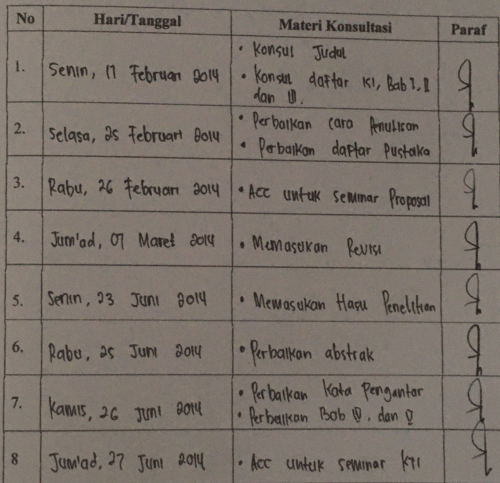 No Hari/Tanggal Materi Konsultasi Paraf
1. Senin, 17 Februari 2014
• Konsul Judul
• Konsul daftar KI, Bab I, II
dan III.
2. Selasa, 25 Februari 2014
• Perbaikan cara Penulisan
• Perbaikan daftar Pustaka
3. Rabu, 26 Februari 2014 • Acc untuk seminar Proposal
4. Jum'ad, 07 Maret 2014 • Memasukan Revisi
5. Senin, 23 Juni 2014 • Memasukan Hasil Penelitian
6. Rabu, 25 Juni 2014 • Perbaikan abstrak
7. Kamis, 26 Juni 2014
• Perbaikan Kata Pengantar
• Perbaikan Bab IV, dan V
8 Jum'ad, 27 Juni 2014 • Acc untuk seminar KTI